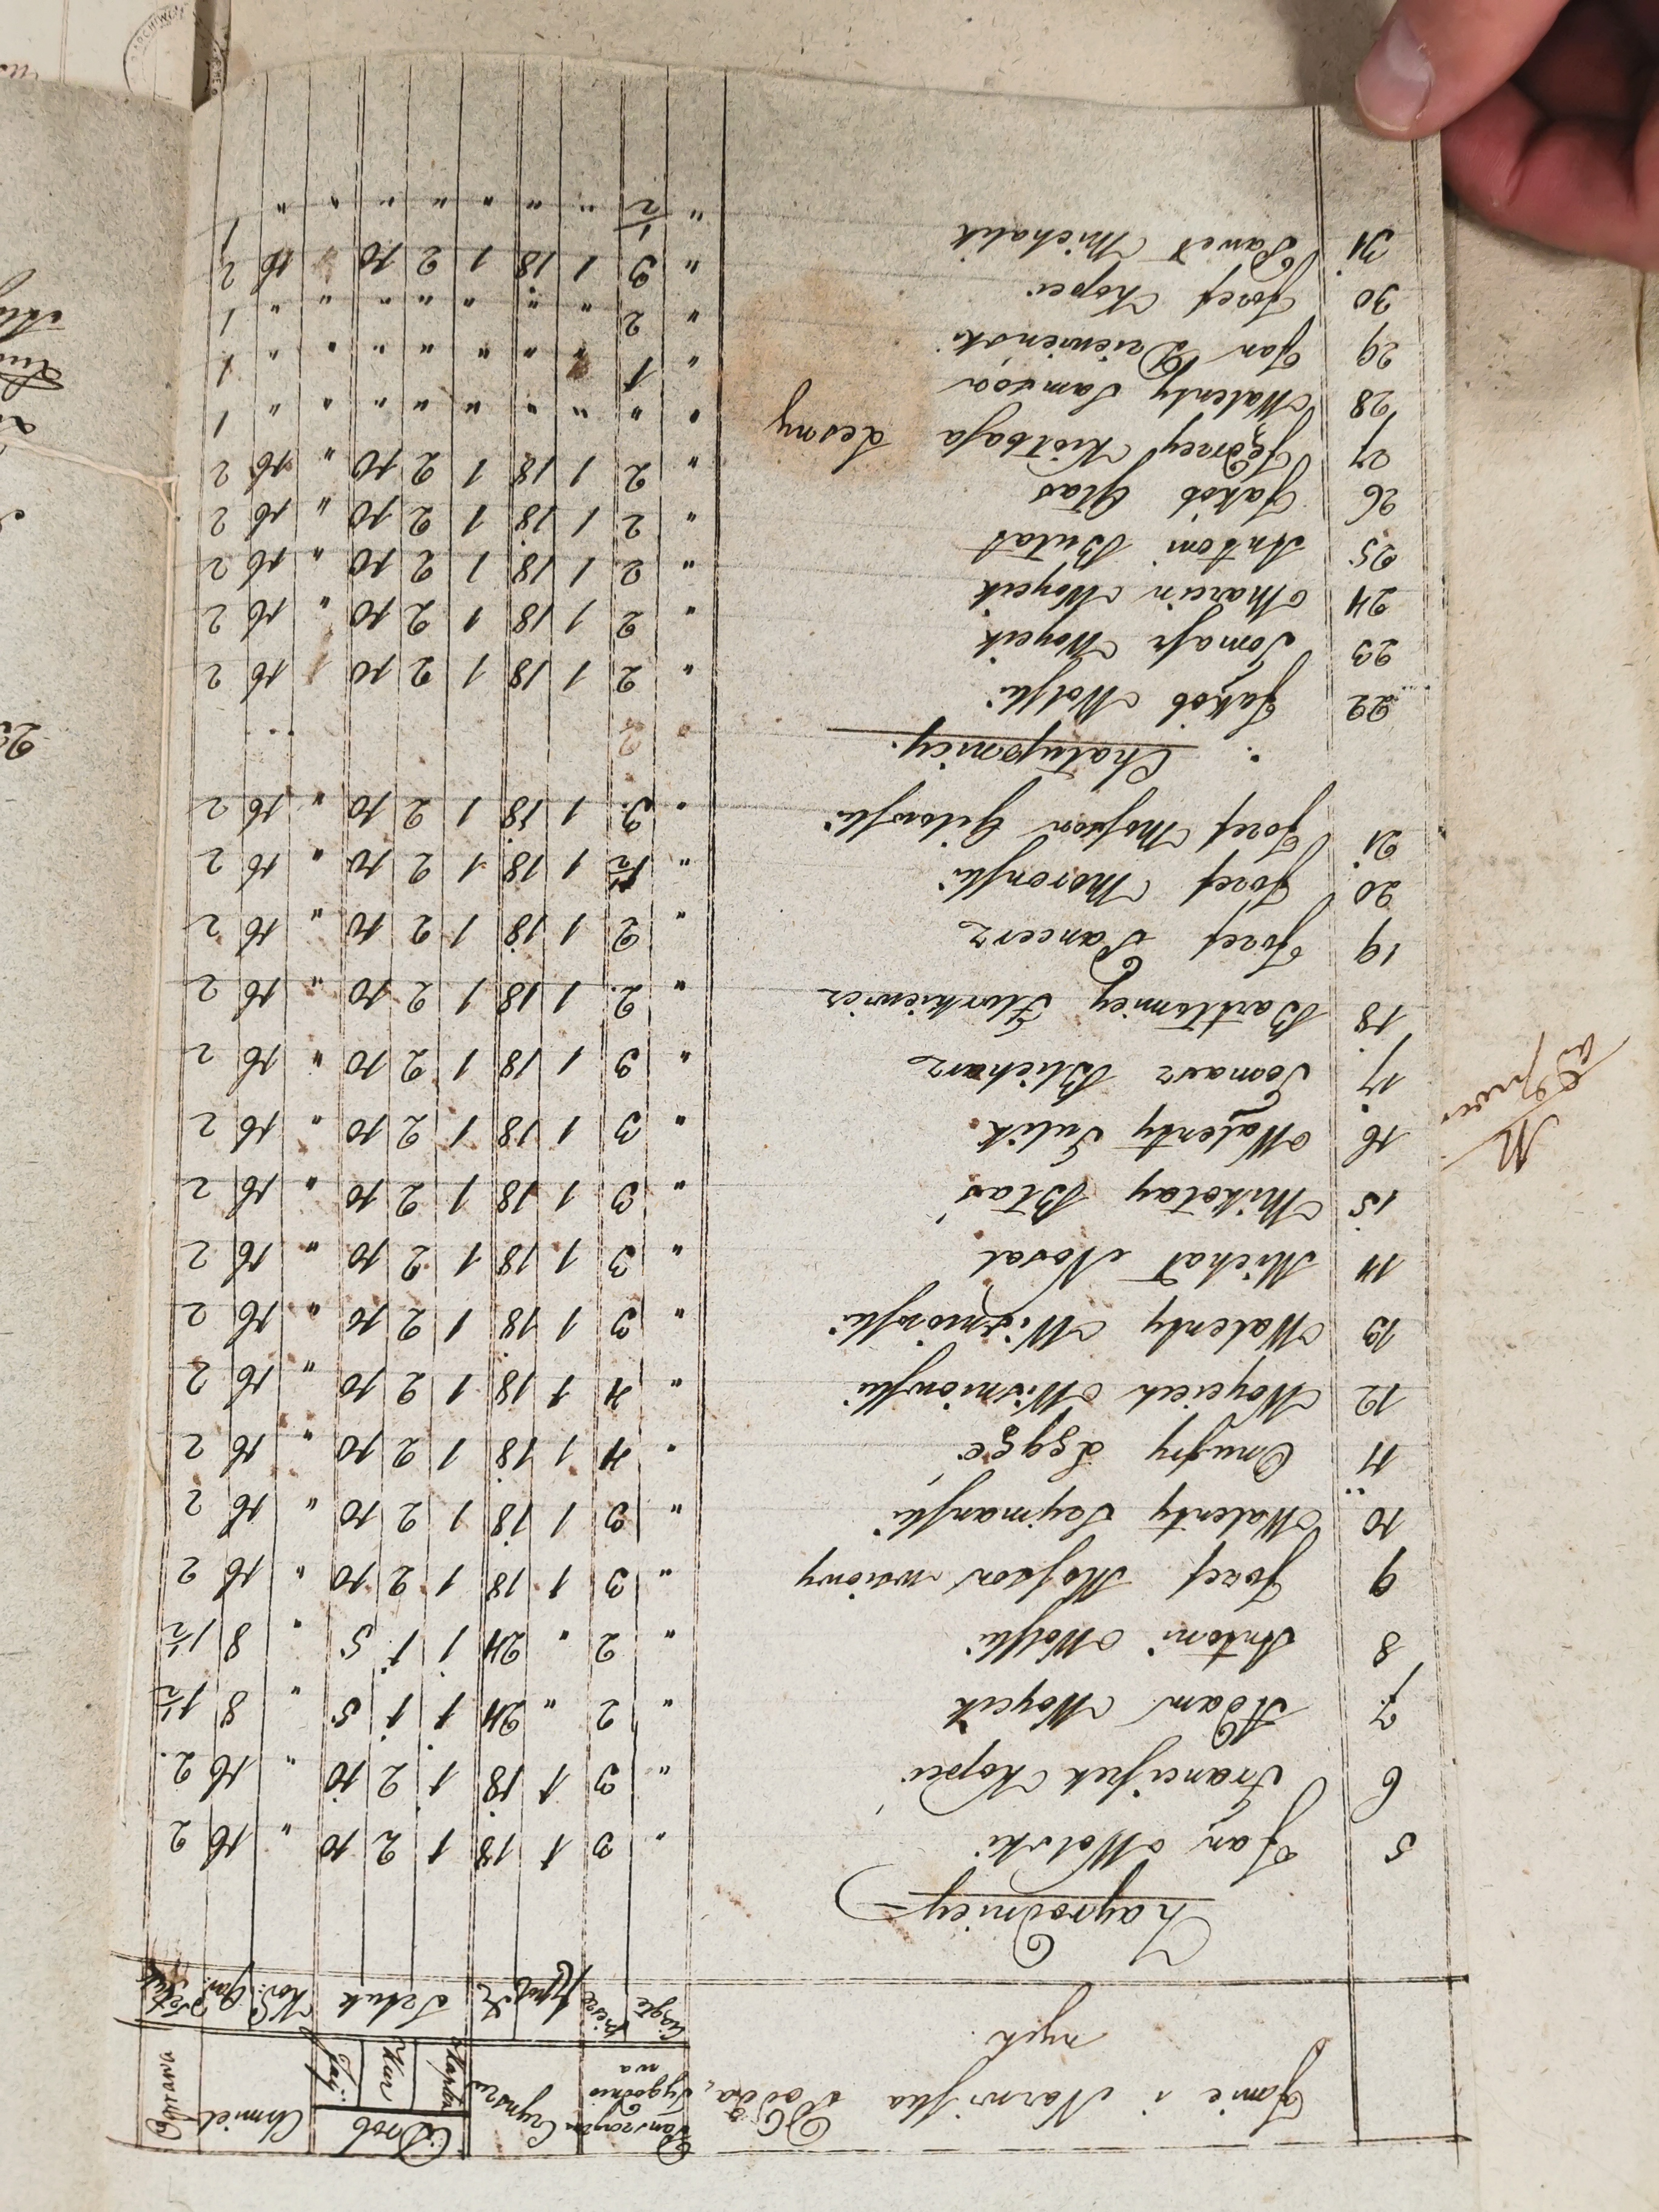 Imie i Nazwiska Podda,
nych.
Panszczyzna Tygodniowa
Czynsz
Drob
Chmiel
Oprawa
Kapłon Kur Jaj
Ciągłe Piesze Złpol gr Sztuk Kor: Gar: Sztuk
Zagrodnicy
5 Jan Wolski " 3 1 18 1 2 10 " 16 2
6 Franciszek Kopeć " 3 1 18 1 2 10 " 16 2
7 Adam Woycik " 2 " 24 1 1 5 " 8 1½
8 Antoni Wolski " 2 " 24 1 1 5 " 8 1½
9 Jozef Moskor nowy " 3 1 18 1 2 10 " 16 2
10 Walenty Szymanski " 3 1 18 1 2 10 " 16 2
11 Onufry " 4 1 18 1 2 10 " 16 2
12 Woyciech Wisniowski " 4 1 18 1 2 10 " 16 2
13 Walenty Wisniowski " 3 1 18 1 2 10 " 16 2
14 Michał Nosal " 3 1 18 1 2 10 " 16 2
15 Mikołay Błas " 3 1 18 1 2 10 " 16 2
16 Walenty Sulik " 3 1 18 1 2 10 " 16 2
17 Tomasz Blicharz " 3 1 18 1 2 10 " 16 2
18 Bartłomiey Florkiewicz " 2 1 18 1 2 10 " 16 2
19 Jozef Pancerz " 2 1 18 1 2 10 " 16 2
20 Jozef Moronski " 1½ 1 18 1 2 10 " 16 2
21 Jozef Moskor Gilowski " 3 1 18 1 2 10 " 16 2
Chałupnicy.
22 Jakob Wolski " 2 1 18 1 2 10 16 2
23 Tomasz Woycik " 2 1 18 1 2 10 " 16 2
24 Marcin Woycik " 2 1 18 1 2 10 " 16 2
25 Antoni Bułat " 2 1 18 1 2 10 " 16 2
26 Jakob Głas " 2 1 18 1 2 10 " 16 2
27 Jędrzey Kiełbasa lesny " " " " " " " " " 1
28 Walenty Samsor " 1 " " " " " " " 1
29 Jan Dziewienski " 2 " " " " " " " 1
30 Jozef Kopeć " 3 1 18 1 2 10 16 2
31 Paweł Michalik " ½ " " " " " " " 1